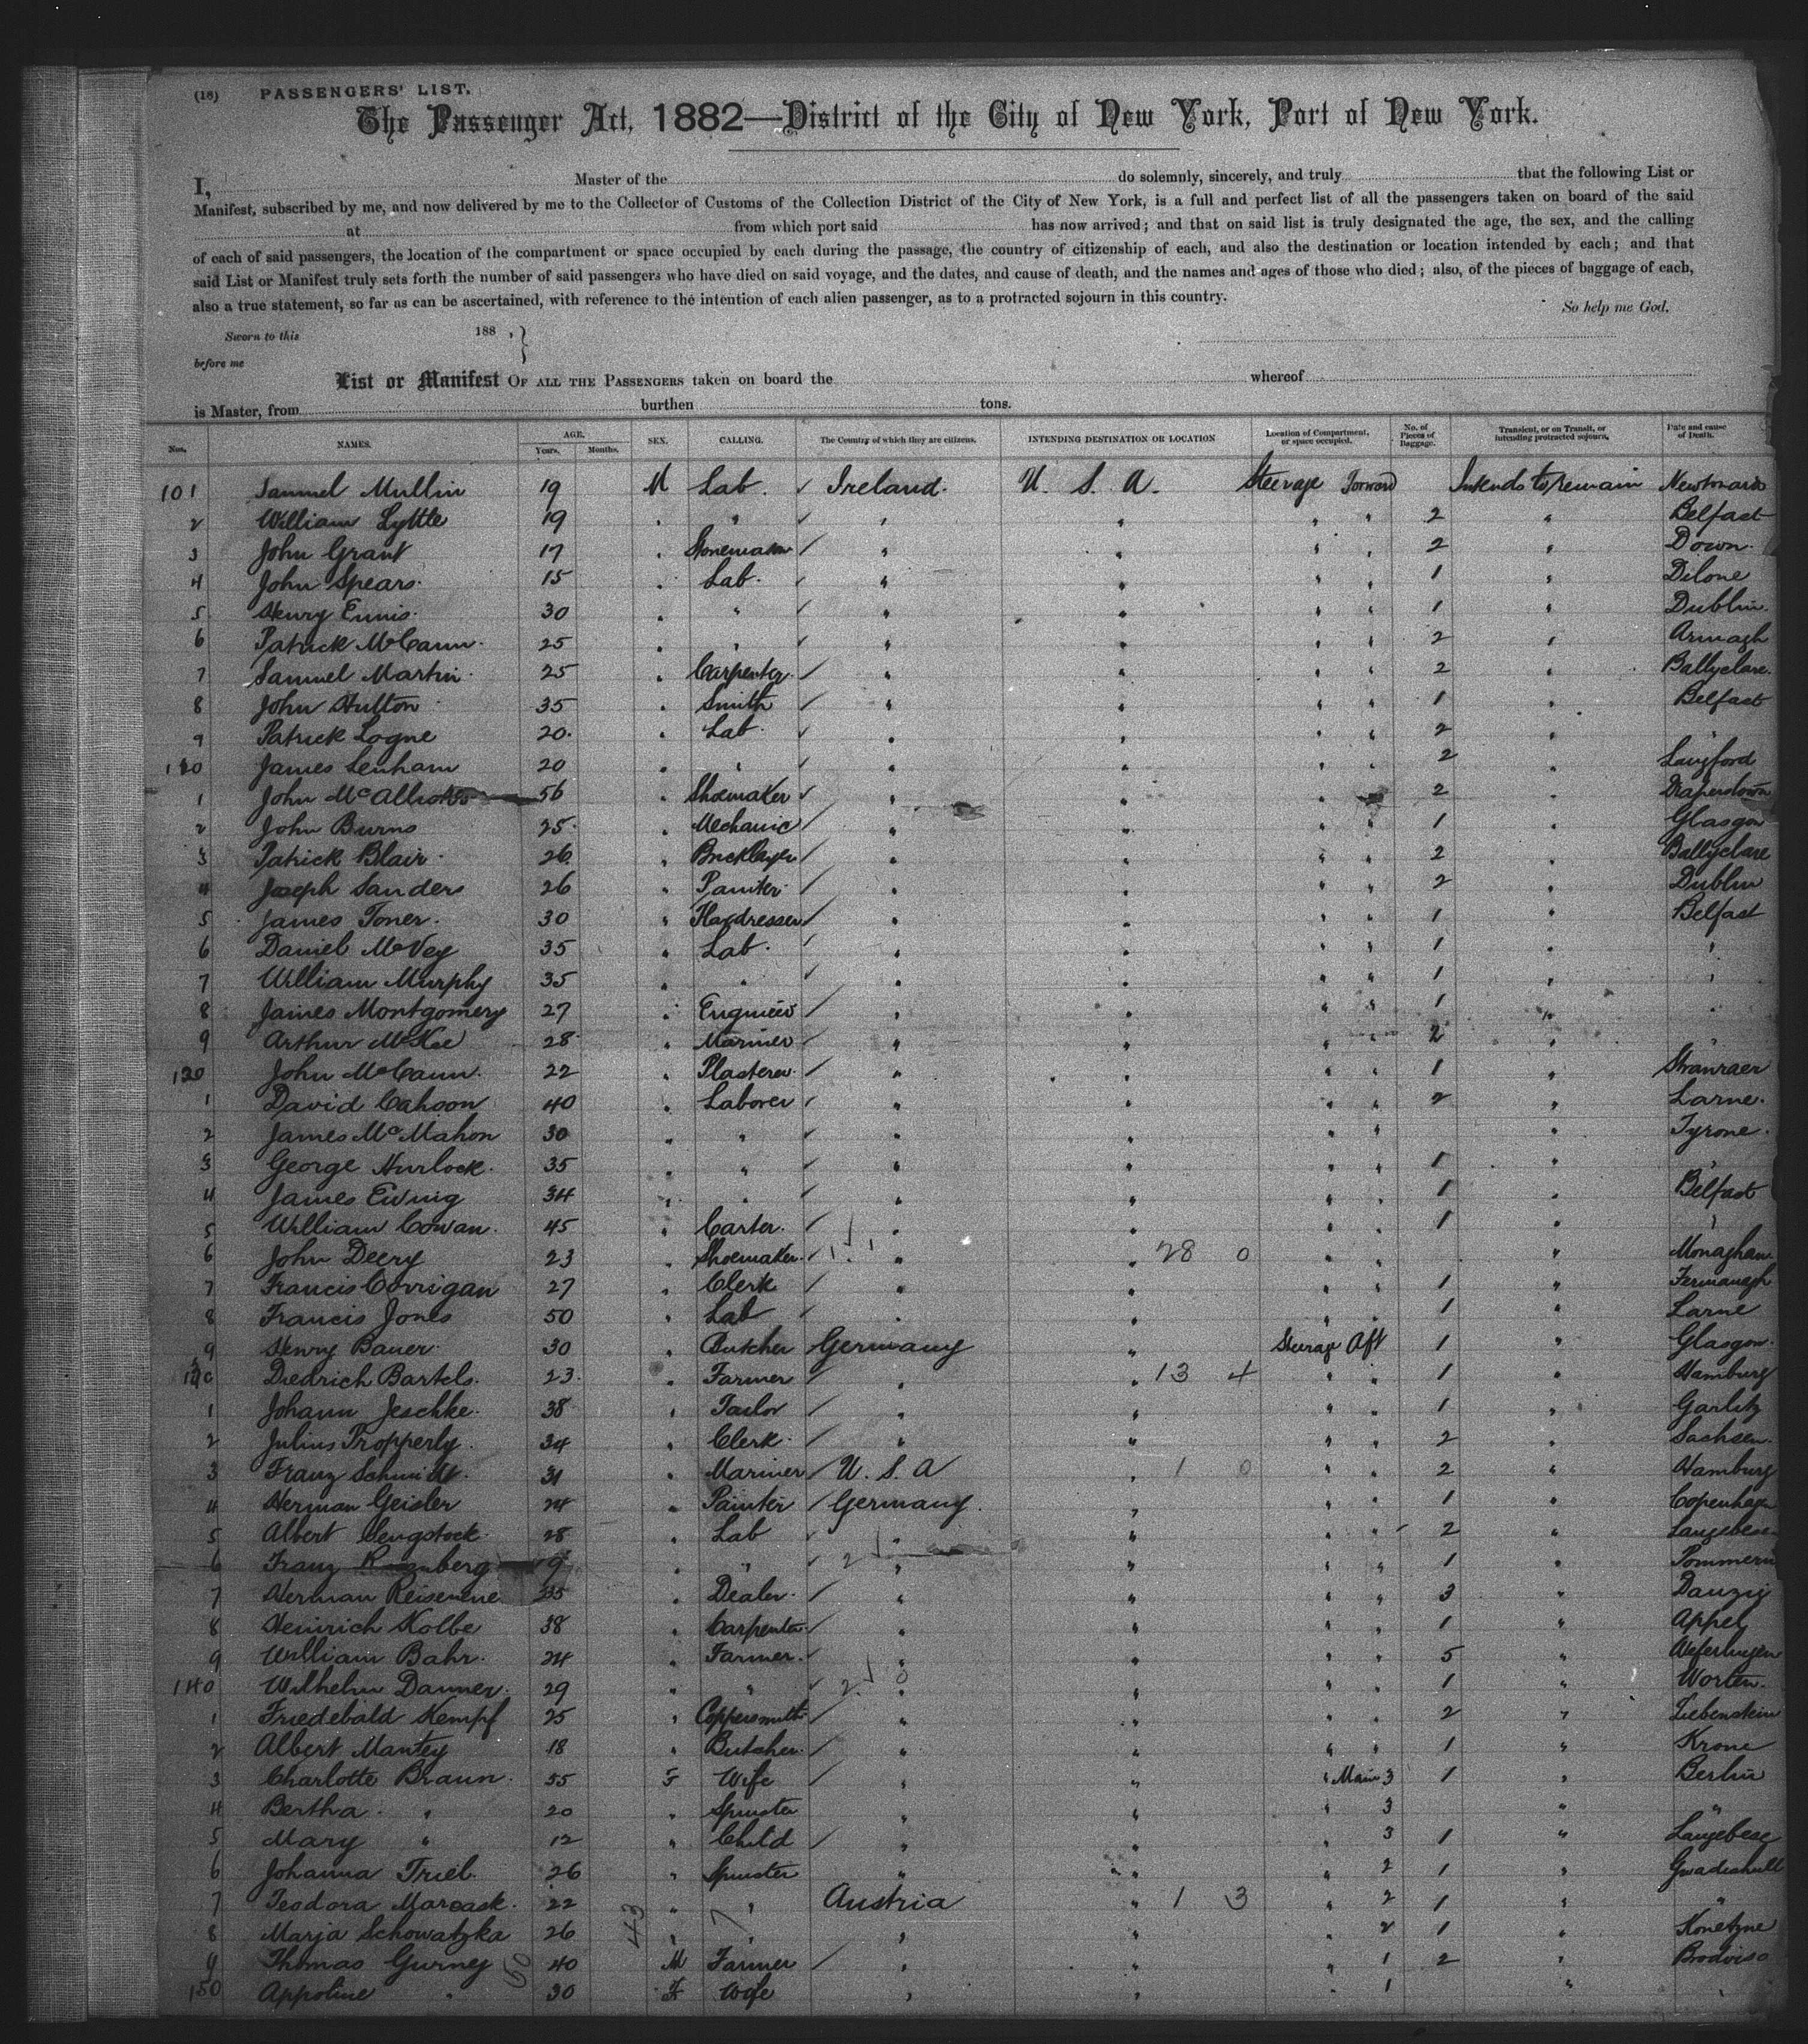 (18) PASSENGERS' LIST.
The Passenger Act, 1882—District of the City of New York, Port of New York.
I, Master of the do solemnly, sincerely, and truly that the following List or
Manifest, subscribed by me, and now delivered by me to the Collector of Customs of the Collection District of the City of New York, is a full and perfect list of all the passengers taken on board of the said
at from which port said has now arrived; and that on said list is truly designated the age, the sex, and the calling
of each of said passengers, the location of the compartment or space occupied by each during the passage, the country of citizenship of each, and also the destination or location intended by each; and that
said List or Manifest truly sets forth the number of said passengers who have died on said voyage, and the dates, and cause of death, and the names and ages of those who died; also, of the pieces of baggage of each,
also a true statement, so far as can be ascertained, with reference to the intention of each alien passenger, as to a protracted sojourn in this country. So help me God.
Sworn to this 188 , }
before me
List or Manifest OF ALL THE PASSENGERS taken on board the whereof
is Master, from burthen tons.
Nos. NAMES. AGE. Years. Months. SEX. CALLING. The Country of which they are citizens. INTENDING DESTINATION OR LOCATION Location of Compartment, or space occupied. No. of Pieces of Baggage. Transient, or on Transit, or intending protracted sojourn. Date and cause of Death.
101 Samuel Mullin 19 M Lab. Ireland. U. S. A. Steerage Forward Intends to remain Newtonards
2 William Lyttle 19 " " " " " " 2 " Belfast
3 John Grant 17 " Stonemason " " " " 2 " Down.
4 John Spears. 15 " Lab. " " " " 1 " Dilone
5 Henry Ennis. 30 " " " " " " 1 " Dublin.
6 Patrick McCann. 25 " " " " " " 2 " Armagh
7 Samuel Martin. 25 " Carpenter. " " " " 2 " Ballyclare.
8 John Hutton 35 " Smith " " " " 1 " Belfast
9 Patrick Logne 20. " Lab. " " " " 2 " "
110 James Lenham 20 " " " " " " 2 " Langford
1 John McAllister 56 " Shoemaker " " " " 2 " Draperstown
2 John Burns 25. " Mechanic " " " " 1 " Glasgow
3 Patrick Blair. 26. " Bricklayer " " " " 2 " Ballyclare
4 Joseph Sanders 26 " Painter. " " " " 2 " Dublin
5 James Toner. 30 " Hardresser " " " " 1 " Belfast
6 Daniel McVey 35 " Lab. " " " " 1 " "
7 William Murphy 35 " " " " " " 1 " "
8 James Montgomery 27 " Engineer " " " " 1 " "
9 Arthur McKee 28 " Mariner " " " " 2 " "
120 John McCann. 22 " Plasterer. " " " " 1 " Stranraer
1 David Cahoon 40 " Laborer " " " " 2 " Larne.
2 James McMahon 30 " " " " " " " Tyrone.
3 George Hurlock. 35 " " " " " " 1 " "
4 James Ewing 34 " " " " " " 1 " Belfast
5 William Cowan. 45 " Carter. " " " " 1 " "
6 John Deery 23 " Shoemaker. " " 28 0 " " " Monaghan
7 Francis Corrigan 27 " Clerk " " " " 1 " Fermanagh
8 Francis Jones 50 " Lab " " " " 1 " Larne
9 Henry Bauer. 30 " Butcher Germany " Steerage Aft 1 " Glasgow.
130 Diedrich Bartels. 23. " Farmer " " 13 4 " " 1 " Hamburg
1 Johann Jeschke. 38 " Tailor " " " " 1 " Garlitz
2 Julius Propperly. 34 " Clerk. " " " " 2 " Sachsen.
3 Franz Schmidt. 31 " Mariner U. S. A " 1 0 " " 2 " Hamburg
4 Herman Geisler 24 " Painter Germany. " " " 1 " Copenhagen
5 Albert Sengstock. 28 " Lab " " " " 2 " Langebese
6 Franz 19 " " 2 " " " " 1 " Pommern
7 Herman 35 " Dealer. " " " " 3 " Danzig
8 Heinrich Kolbe 38 " Carpenter. " " " " 1 " Appel
9 William Bahr. 24 " Farmer. " " " " 5 " Weferlingen
140 Wilhelm Danner. 29 " " 2. 0 " " " " 1 " Worten.
1 Friedebald Kempf 25 " Coppersmith. " " " " 2 " Liebenstein
2 Albert Mantey 18 " Butcher. " " " " 1 " Krone
3 Charlotte Braun. 55 F Wife " " " Main 3 1 " Berlin
4 Bertha. " 20 " Spinster " " " 3 " "
5 Mary " 12 " Child " " " 3 1 " Langebese
6 Johanna Triel. 26 " Spinster " " " 2 1 "
7 Teodora Marcask. 22 " " Austria " 1 3 " 2 1 " "
8 Marja Schowatzka 26 " 7 " " " 2 1 " Konetzne
9 Thomas Gurney 40 M Farmer " " " 1 2 " Brodviso
150 Appoline " 30 F Wife " " " 1 " "
43
50